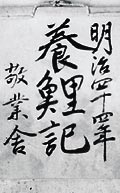 明治四十四年
養鯉記
敬業舎